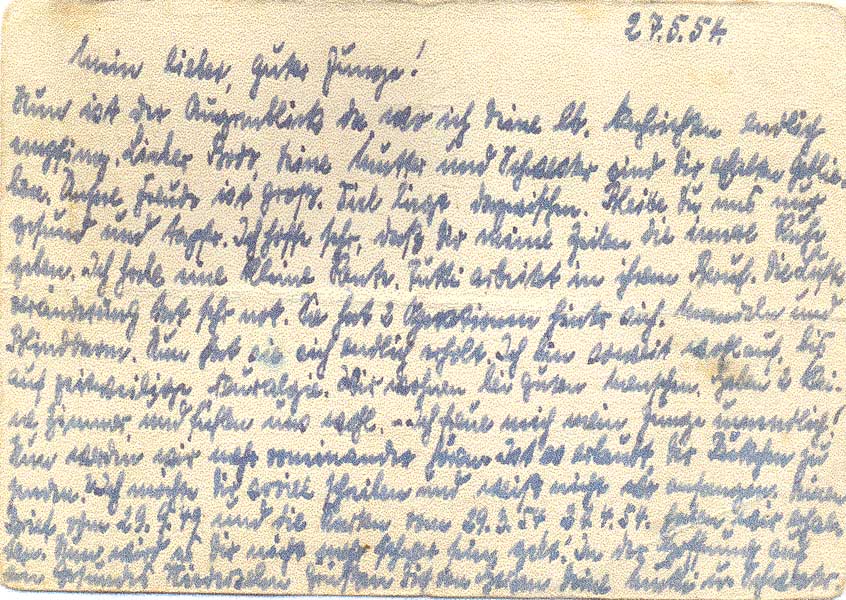 27.5.54.
Mein lieber, guter Junge!
Nun ist der Augenblick da wo ich deine lb. Nachrichten endlich
empfing. Lieber deine Mutter und Schwester sind dir erhalten geblie-
ben. Unsere Freude ist groß. Viel liegt dazwischen. Bleibe du uns nur
gesund und tapfer. Ich hoffe sehr, dass dir meine Zeilen die innere Ruhe
geben. Ich habe eine kleine Rente. Putti arbeitet in ihrem Beruf. Die Luft-
veränderung tat sehr not. Sie hat 2 Operationen hinter sich. Mandeln und
Blinddarm. Nun hat sie sich endlich erholt. Ich bin soweit wohlauf, bis
auf zeitweilige Neuralgie. Wir wohnen bei guten Menschen. Haben 2 klei-
ne Zimmer und fühlen uns wohl. Ich freue mich mein Junge unendlich!
Nun werden wir mehr voneinander hören. Ist es erlaubt dir Päckchen zu
senden. Ich möchte dir soviel schreiben und weiß nicht wo anfangen. Deinen
Brief vom 29.9.49 und die Karten vom 29.3.54 4.54. haben wir erhal-
ten. Nun wird es dir nicht mehr schwer sein gelt! In der Hoffnung auf
ein gesundes Wiedersehn grüßen dich von Herzen deine Mutti u. Schwester.